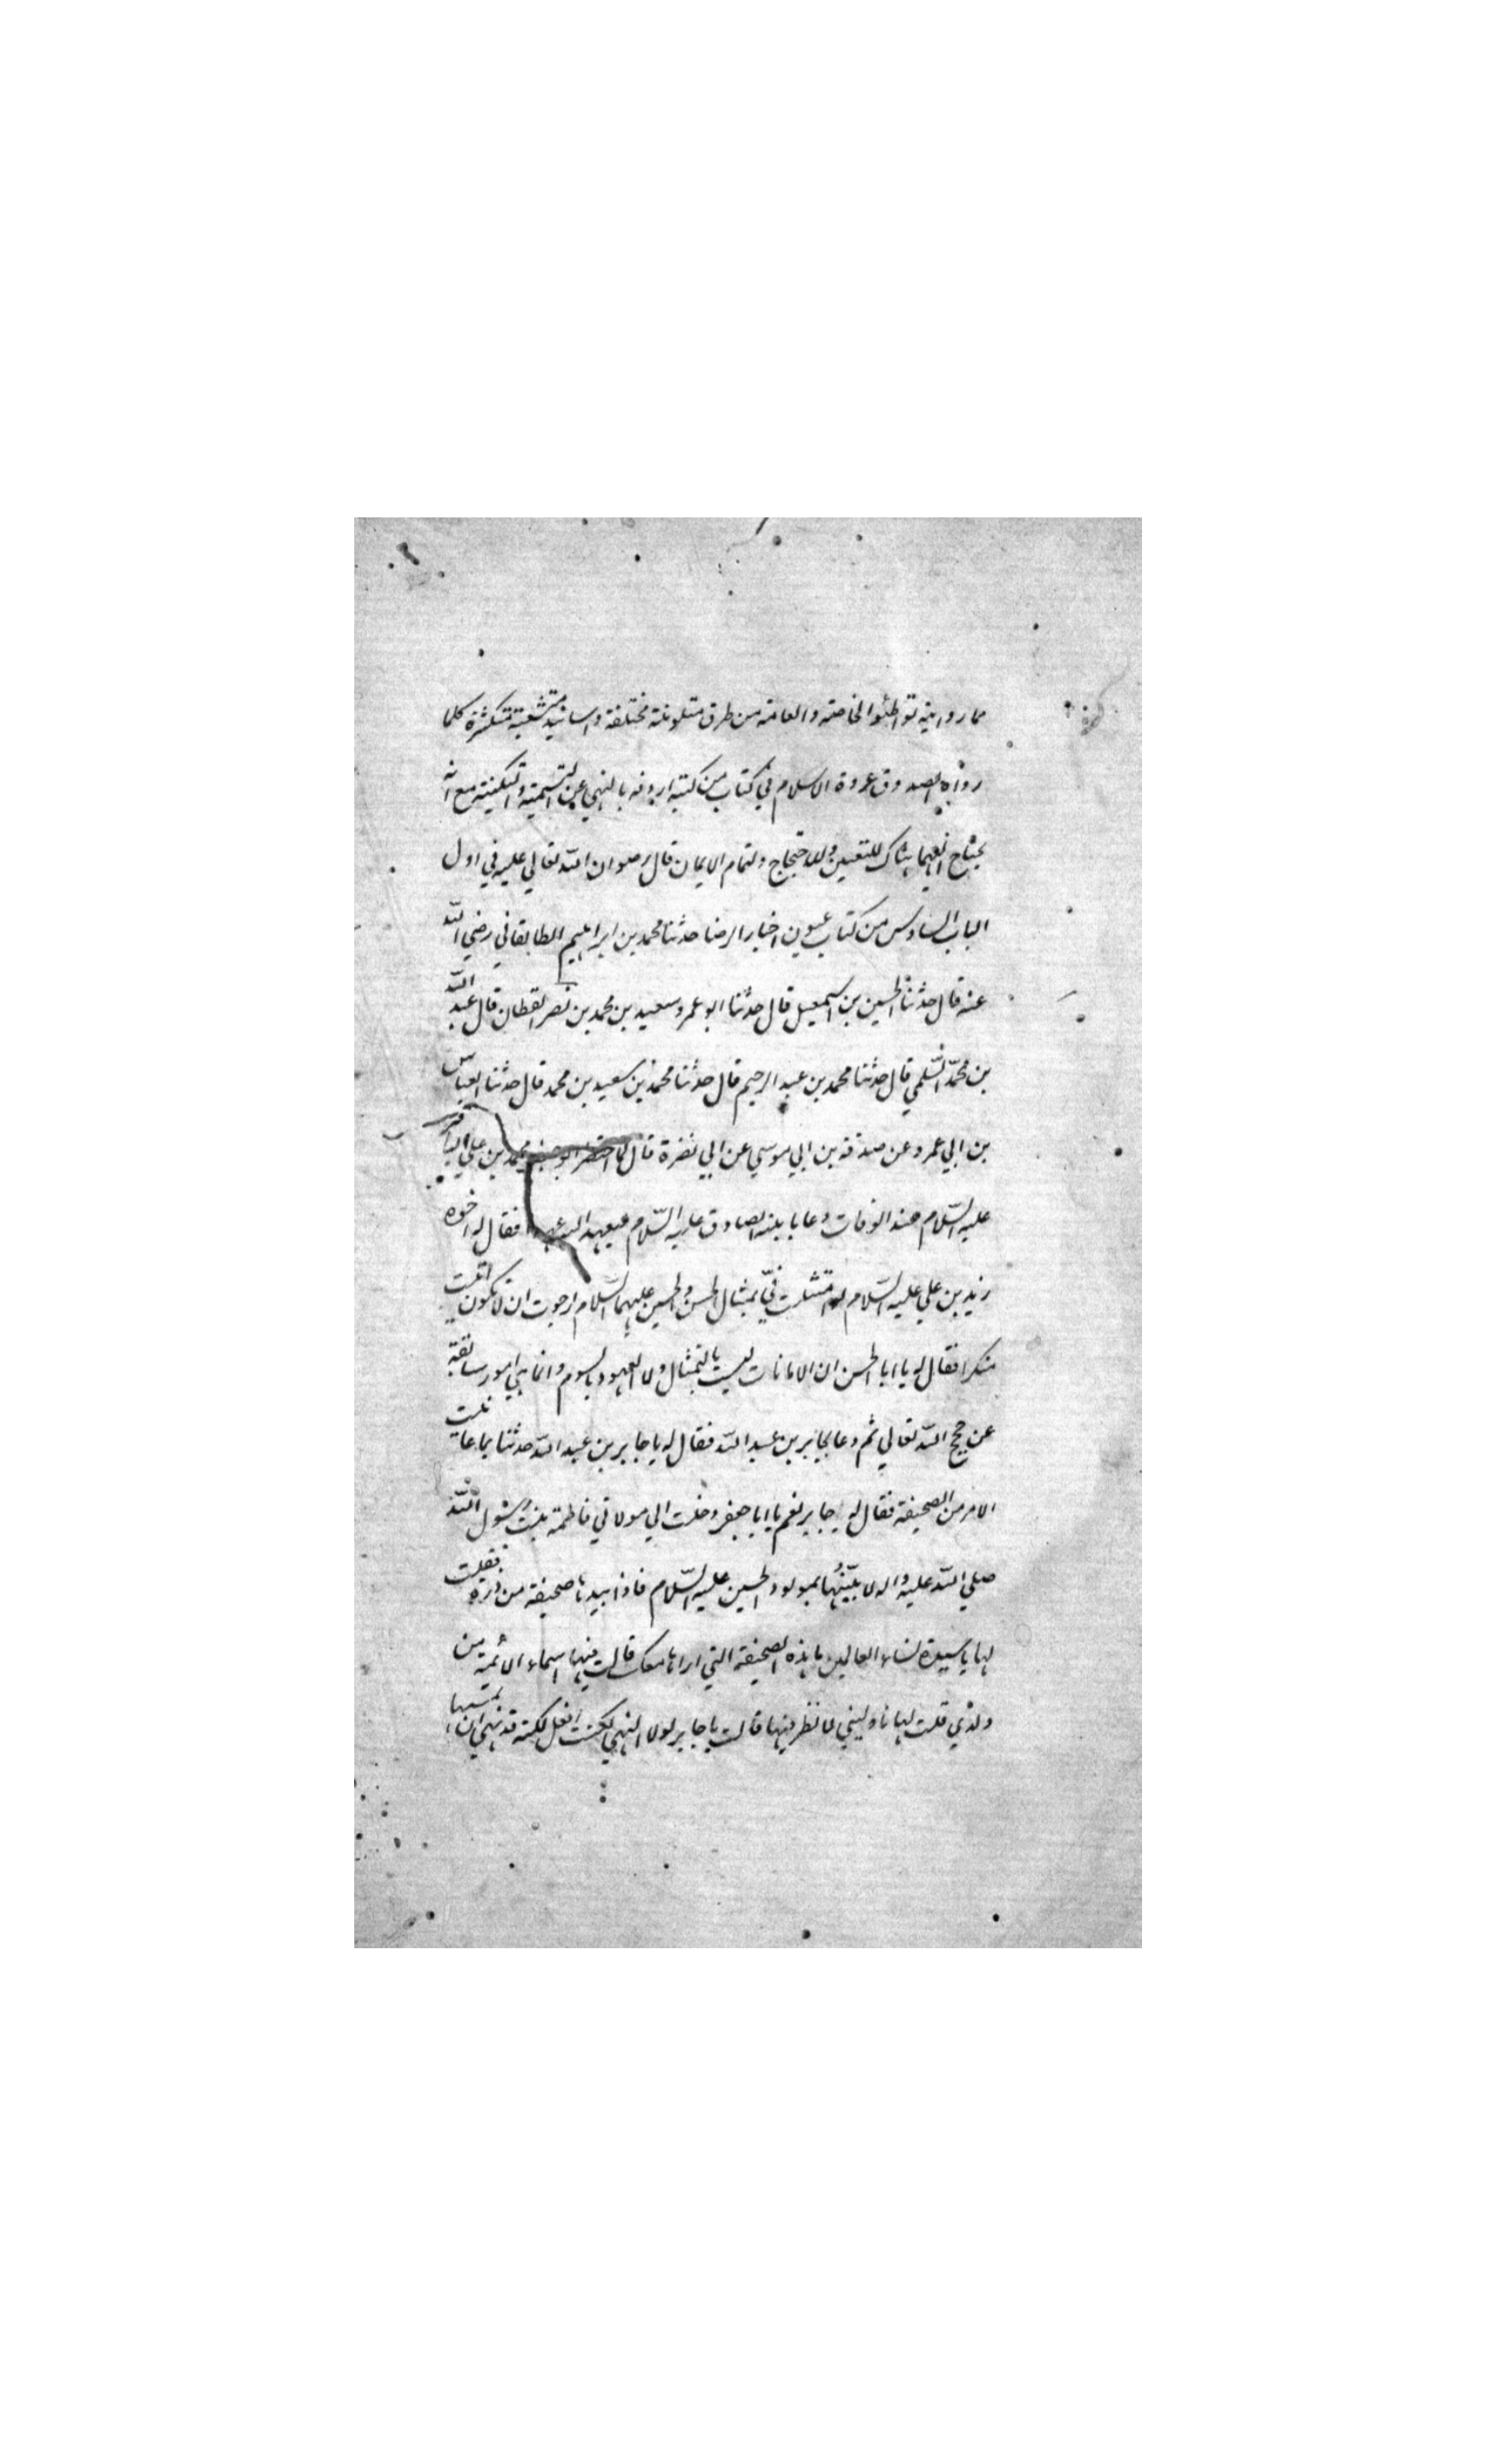 مما روايته تواطئوا الخاصة والعامة من طرق متلونة مختلفة واسانيد متشعبة متكثرة كلما
رواه الصدوق عروة الاسلام في كتاب من كتبه اردفه بالنهي عن التسمية والتكنية مع انه
يحتاج اليهما هناك للتعيين وللاحتجاج ولتمام الايمان قال رضوان الله تعالي عليه في اول
الباب السادس من كتاب عيون اخبار الرضا حدثنا محمد بن ابراهيم الطالقاني رضي الله
عنه قال حدثنا الحسين بن اسمعيل قال حدثنا ابو عمرو سعيد بن محمد بن نصر القطان قال عبد الله
بن محمد السلمي قال حدثنا محمد بن عبد الرحيم قال حدثنا محمد بن سعيد بن محمد قال حدثنا العباس
بن ابي عمرو عن صدقة بن ابي موسي عن ابي نضرة قال لما احتضر ابو جعفر محمد بن علي الباقر
عليه السلام عند الوفات دعا بابنه الصادق عليه السلام فيعهد اليه عهدا فقال له اخوه
زيد بن علي عليه السلام لو تمثلت في بمثال الحسن والحسين عليهما السلام ارجوت ان لا تكون اتيت
منكرا فقال له يا ابا الحسن ان الامانات ليست بالتمثال ولا العهود بالسوم وانما هي امور سابقة
عن حجج الله تعالي ثم دعا بجابر بن عبد الله فقال له يا جابر بن عبد الله حدثنا بما عاينت
الامر من الصحيفة فقال له جابر نعم يا ابا جعفر دخلت الي مولاتي فاطمة بنت رسول الله
صلي الله عليه واله لاهنيها بمولود الحسين عليه السلام فاذا بيدها صحيفة من درة فقلت
لها يا سيدة نساء العالمين ما هذه الصحيفة التي اراها معك قالت فيها اسماء الائمة من
ولدي قلت لها ناوليني لانظر فيها قالت يا جابر لولا النهي لكنت افعل لكنه قد نهي ان يمسها